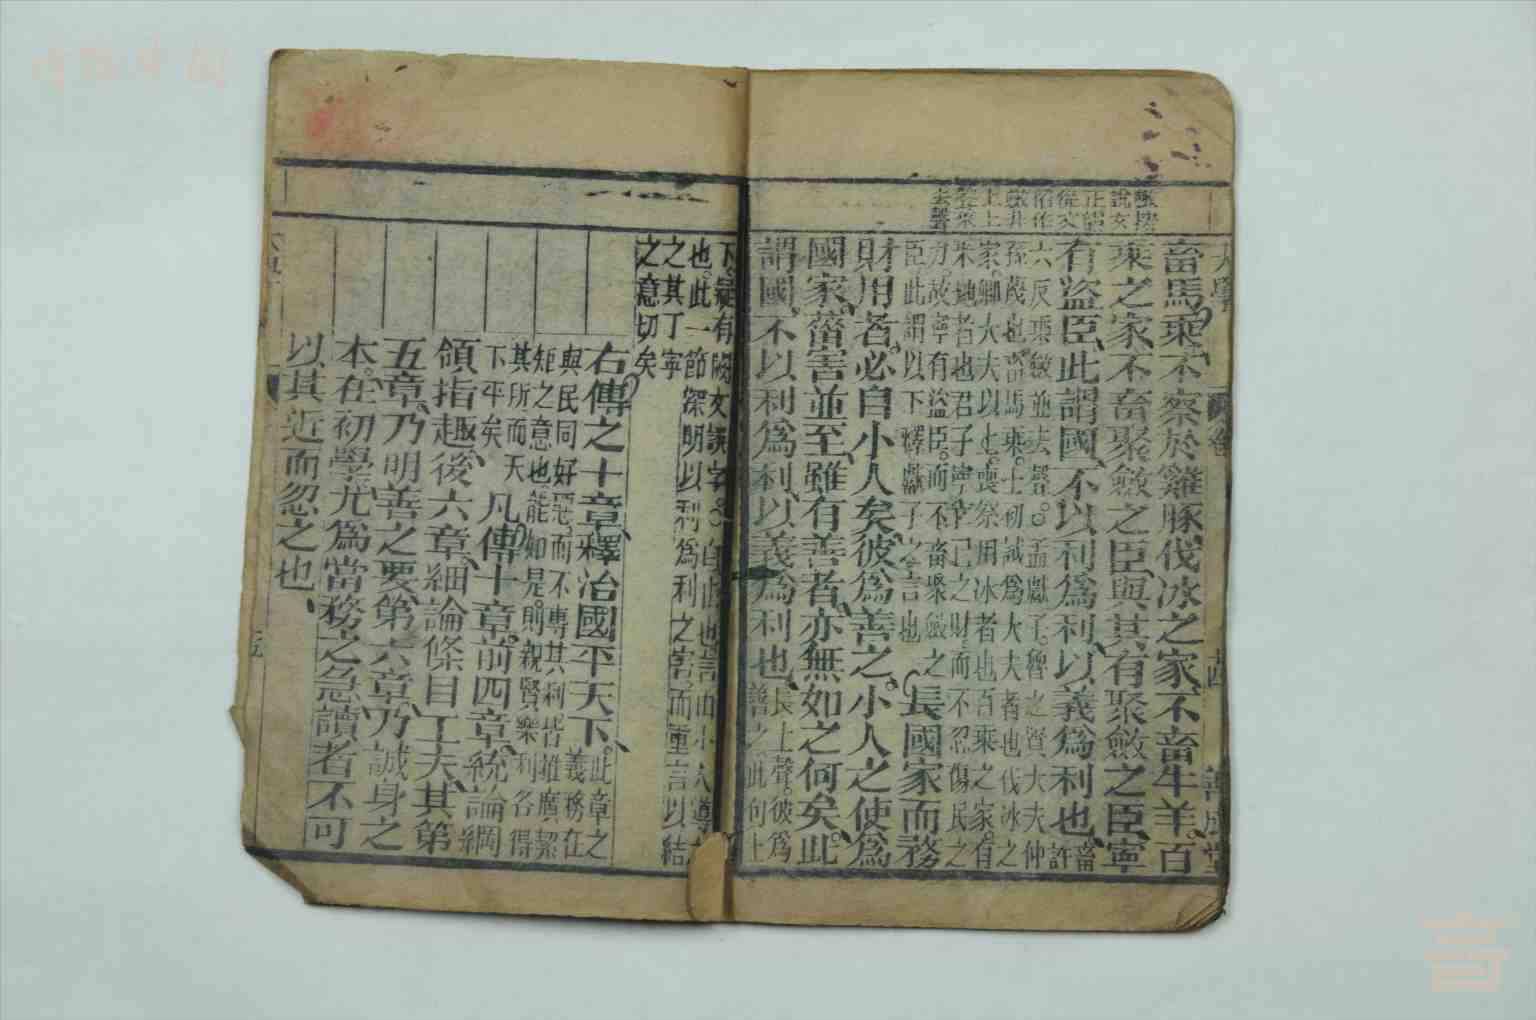 畜馬乘不察於雞豚伐冰之家不畜牛羊百
乘之家不畜聚斂之臣與其有聚斂之臣寧
有盜臣此謂國不以利爲利以義爲利也畜許
六反乘斂並去聲○孟獻子魯之賢大夫仲
孫蔑也畜馬乘士初試爲大夫者也伐冰之
家卿大夫以上喪祭用冰者也百乘之家有
采地者也君子寧亡己之財而不忍傷民之
力故寧有盜臣而不畜聚斂之
臣此謂以下釋獻子之言也
長國家而務
財用者必自小人矣彼爲善之小人之使爲
國家菑害並至雖有善者亦無如之何矣此
謂國不以利爲利以義爲利也
長上聲彼爲
善之此句上
下疑有闕文誤字○自由也言由小人導
也此一節深明以利爲利之害而重言以結
之其丁寧
之意切矣
右傳之十章釋治國平天下
此章之
義務在
與民同好惡而不專其利皆推廣絜
矩之意也能如是則親賢樂利各得
其所而天
下平矣
凡傳十章前四章統論綱
領指趣後六章細論條目工夫其第
五章乃明善之要第六章乃誠身之
本在初學尤爲當務之急讀者不可
以其近而忽之也
大學
善成堂